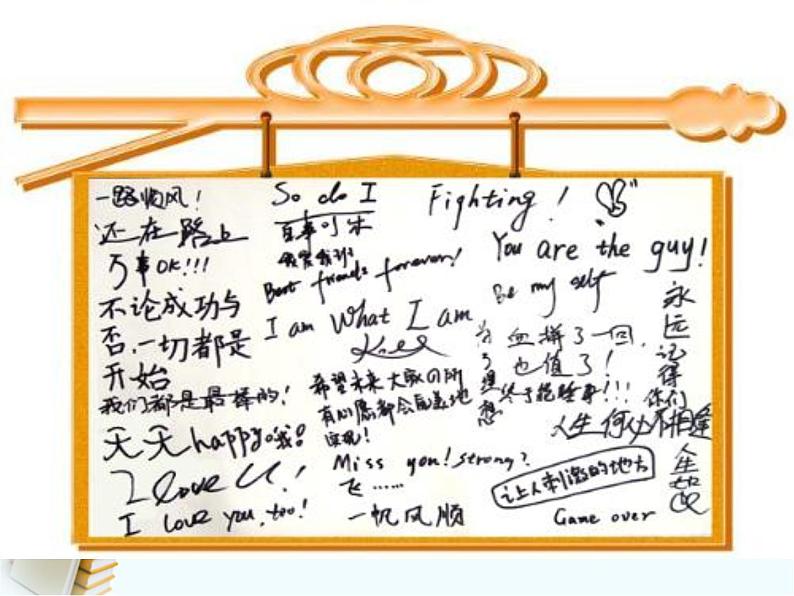 一路顺风！
还在路上
万事OK!!!
不论成功与
否，一切都是
开始
我们都是最棒的！
天天happy哦
I love U!
I love you, too!
So do I
百事可乐
我爱我班
Best friends forever!
I am What I am
希望未来大家的所
有心愿都会自美地
实现！
Miss you! strong?
飞……
一帆风顺
Fighting!
You are the guy!
Be my self
为了理想
血拼了一回，
也值了！
终于抢到手!!!
永远记得你们
人生何处不相逢
人生如
让人刺激的地方
Game over